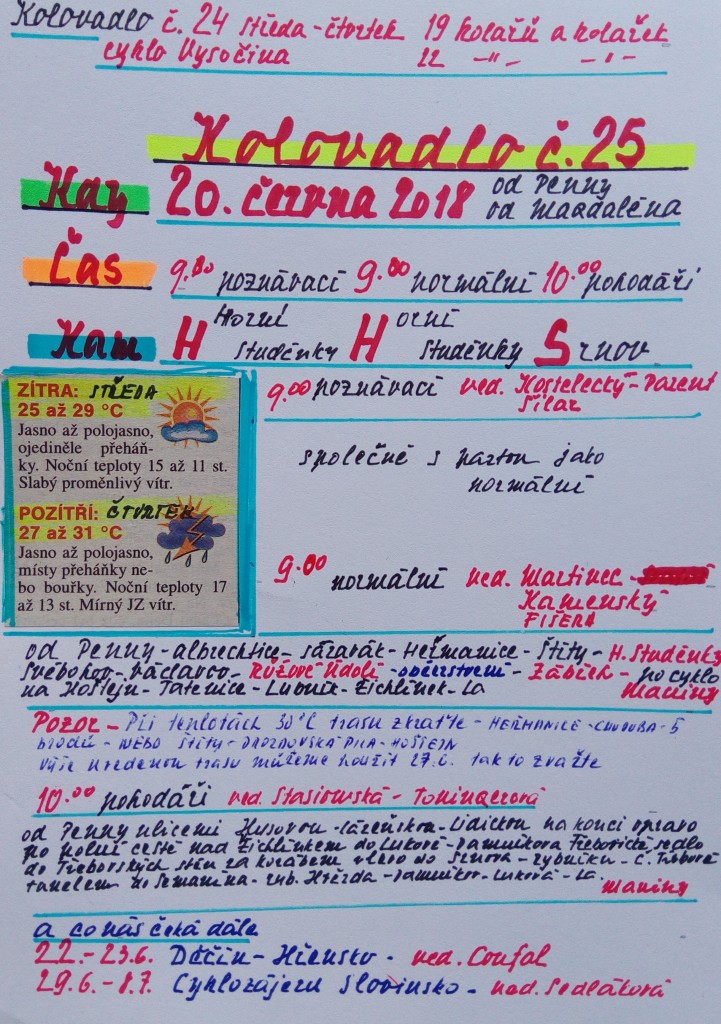 Kolovadlo č. 24 středa - čtvrtek 19 kolařů a kolařek
cyklo Vysočina 12 -"- -"-
Kolovadlo č. 25
Kdy 20. června 2018 od Penny
od Magdaléna
Čas 9.00 poznávací 9.00 normální 10.00 pohodáři
Kam Horní Studénky Horní Studénky Srnov
ZÍTRA: STŘEDA
25 až 29 °C
Jasno až polojasno,
ojediněle přeháň-
ky. Noční teploty 15 až 11 st.
Slabý proměnlivý vítr.
POZÍTŘÍ: ČTVRTEK
27 až 31 °C
Jasno až polojasno,
místy přeháňky ne-
bo bouřky. Noční teploty 17
až 13 st. Mírný JZ vítr.
9.00 poznávací ved. Kostelecký - Parent
Šilar
společně s partou jako
normální
9.00 normální ved. Martinec -
Kamenský
FIŠERA
od Penny - albrechtice - sázavák - Heřmanice - Štíty - H. Studénky
Svébohov - Václavov - Růžové údolí - občerstvení - Zábřeh - po cyklo
na Hoštejn - Tatenice - Lubník - Žichlínek - La Maniny
Pozor - Při teplotách 30°C trasu zkraťte - HEŘMANICE - CHUDOBA - 5
brodů - NEBO ŠTÍTY - DROZDOVSKÁ PILA - HOŠTEJN
výše uvedenou trasu můžeme použít 27.6. tak to zvažte
10.00 pohodáři ved. Stasiowská - Tomingerová
od Penny ulicemi Husovou - Lázeňskou - Lidickou na konci vpravo
po polní cestě nad Žichlínkem do Lukové - Damníkova Třebovické sedlo
do Třeborských stěn za korábem vlevo do Srnova - rybníku - Č. Třebová
tunelem do Semanína - ryb. Hvězda - Damníkov - Luková - La.
Maniny
a co nás čeká dále
22. - 23.6. Děčín - Hřensko - ved. Coufal
29.6. - 8.7. Cyklozájezd Slovinsko - ved. Sedláková